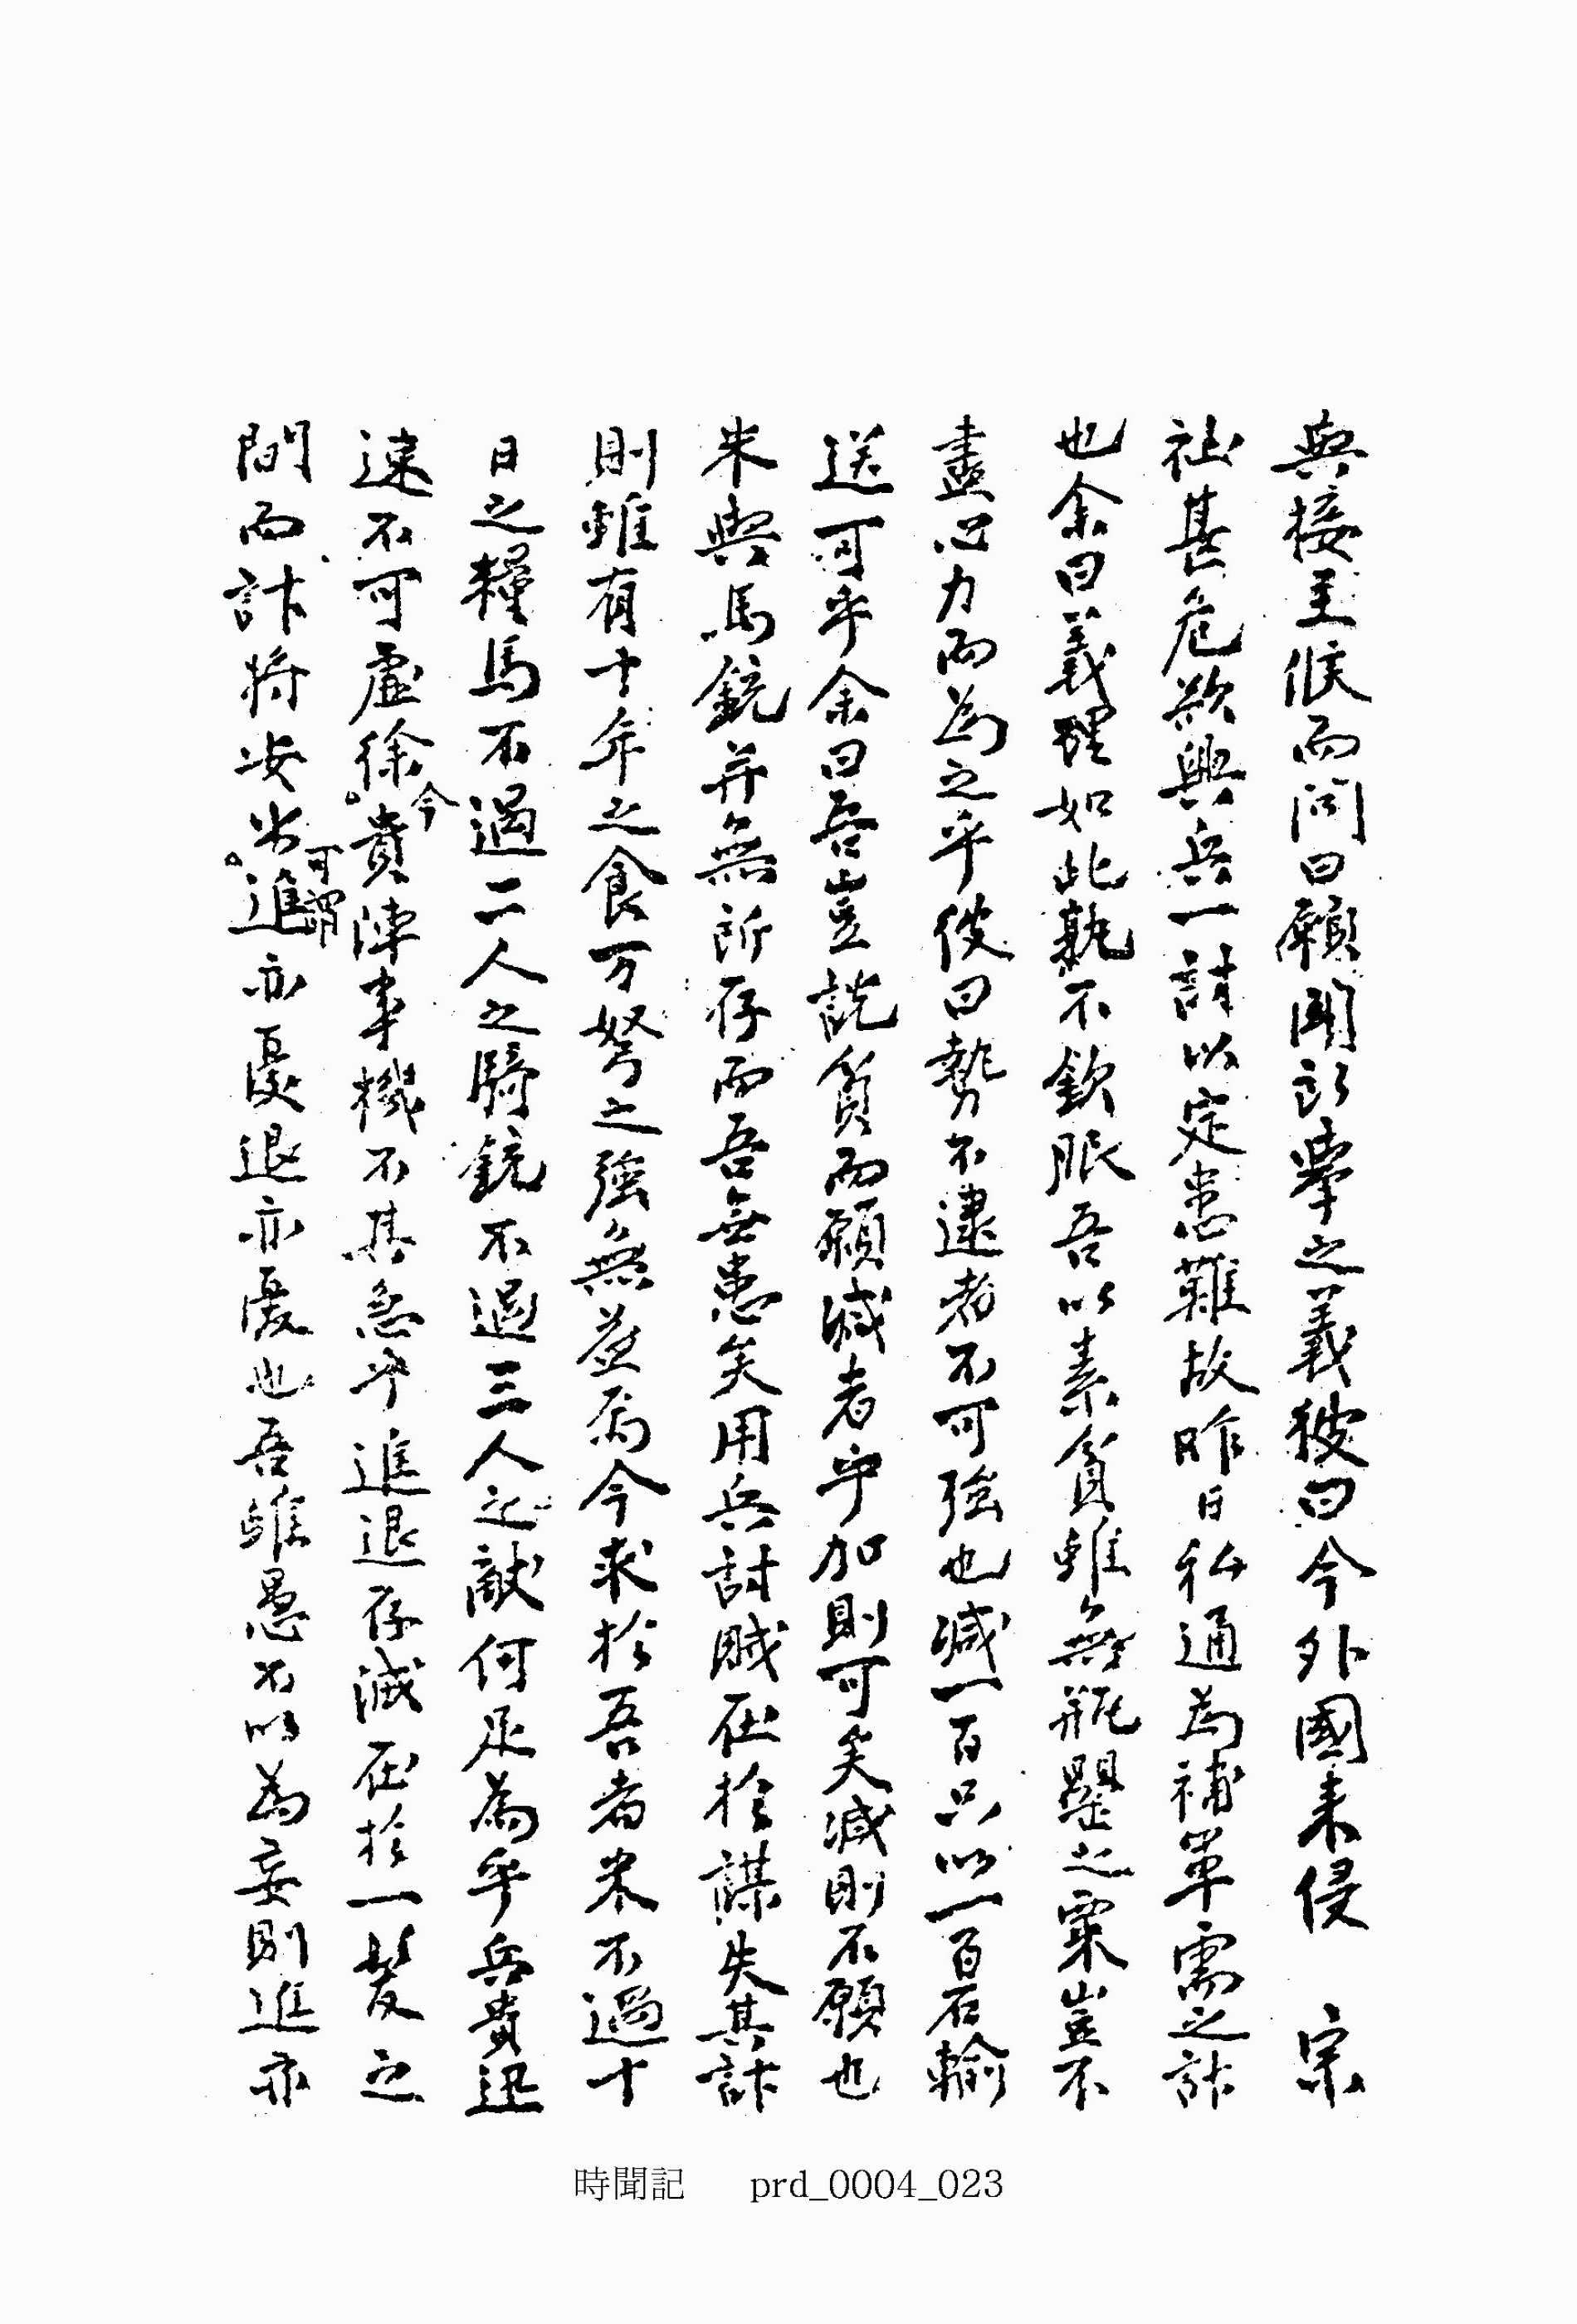 與接主候而問曰願聞所擧之義彼曰今外國来侵　宗
社甚危欲興兵一討以定患難故昨日私通為補軍需之計
也余曰義理如此孰不欽服吾以素貧雖無甁罌之粟豈不
盡心力而為之乎彼曰勢不逮者不可強也减一百只以一百石輸
送可乎余曰吾豈説貧而願减者乎加則可矣减則不願也
米與馬銃并無所存而吾無患矣用兵討賊在於謀失其計
則雖有十年之食万弩之強無益焉今求於吾者米不過十
日之糧馬不過二人之騎銃不過三人之敵何足為乎兵貴迅
速不可虛徐今貴陣事機不其急乎進退存滅在於一髮之
間而計將安出可謂進亦憂退亦憂也吾雖愚不以為妄則進亦
時聞記 prd_0004_023